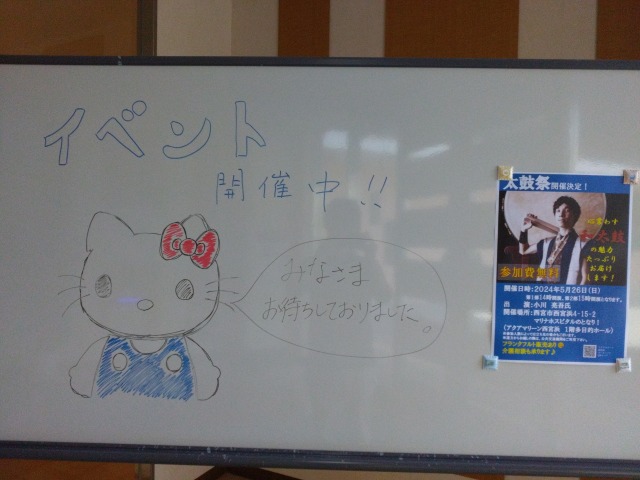 イベント
開催中!!
みなさま
お待ちしておりました。
太鼓祭開催決定!
心震わす
和太鼓
の魅力
たっぷり
お届け
します!
参加費無料
開催日時:2024年5月26日(日)
第1部14時開演、第2部15時開演となります。
出 演:小川 亮吾氏
開催場所:西宮市西宮浜4-15-2
マリナホスピタルのとなり!
(アクアマリーン西宮浜 1階多目的ホール)
フランクフルト販売あり
介護相談も承ります♪